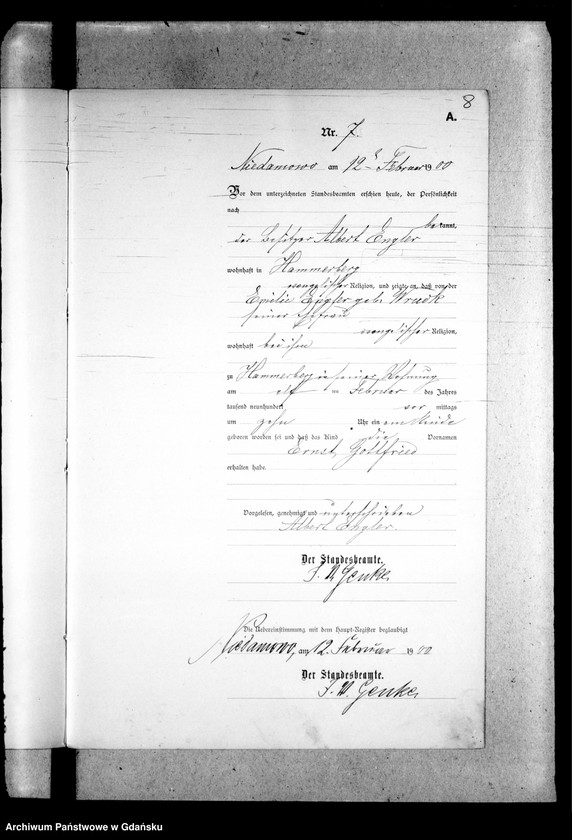 8
A.
Nr. 7.
Niedamowo am 12ten Februar 1900
Vor dem unterzeichneten Standesbeamten erschien heute, der Persönlichkeit
nach
be kannt,
der Besitzer Albert Engler
wohnhaft in Hammerberg
evangelischer Religion, und zeigte an, daß von der
Emilie Engler geb.
seiner Ehefrau
evangelischer Religion,
wohnhaft bei ihm
zu Hammerberg in seiner Wohnung
am elf ten Februar des Jahres
tausend neunhundert vor mittags
um zehn Uhr ein Kind
geboren worden sei und daß das Kind die Vornamen
Ernst Gottfried
erhalten habe.
Vorgelesen, genehmigt und unterschrieben
Albert Engler.
Der Standesbeamte.
Genke.
Die Uebereinstimmung mit dem Haupt-Register beglaubigt
Niedamowo, am 12. Februar 1900
Der Standesbeamte.
Genke.
Archiwum Państwowe w Gdańsku